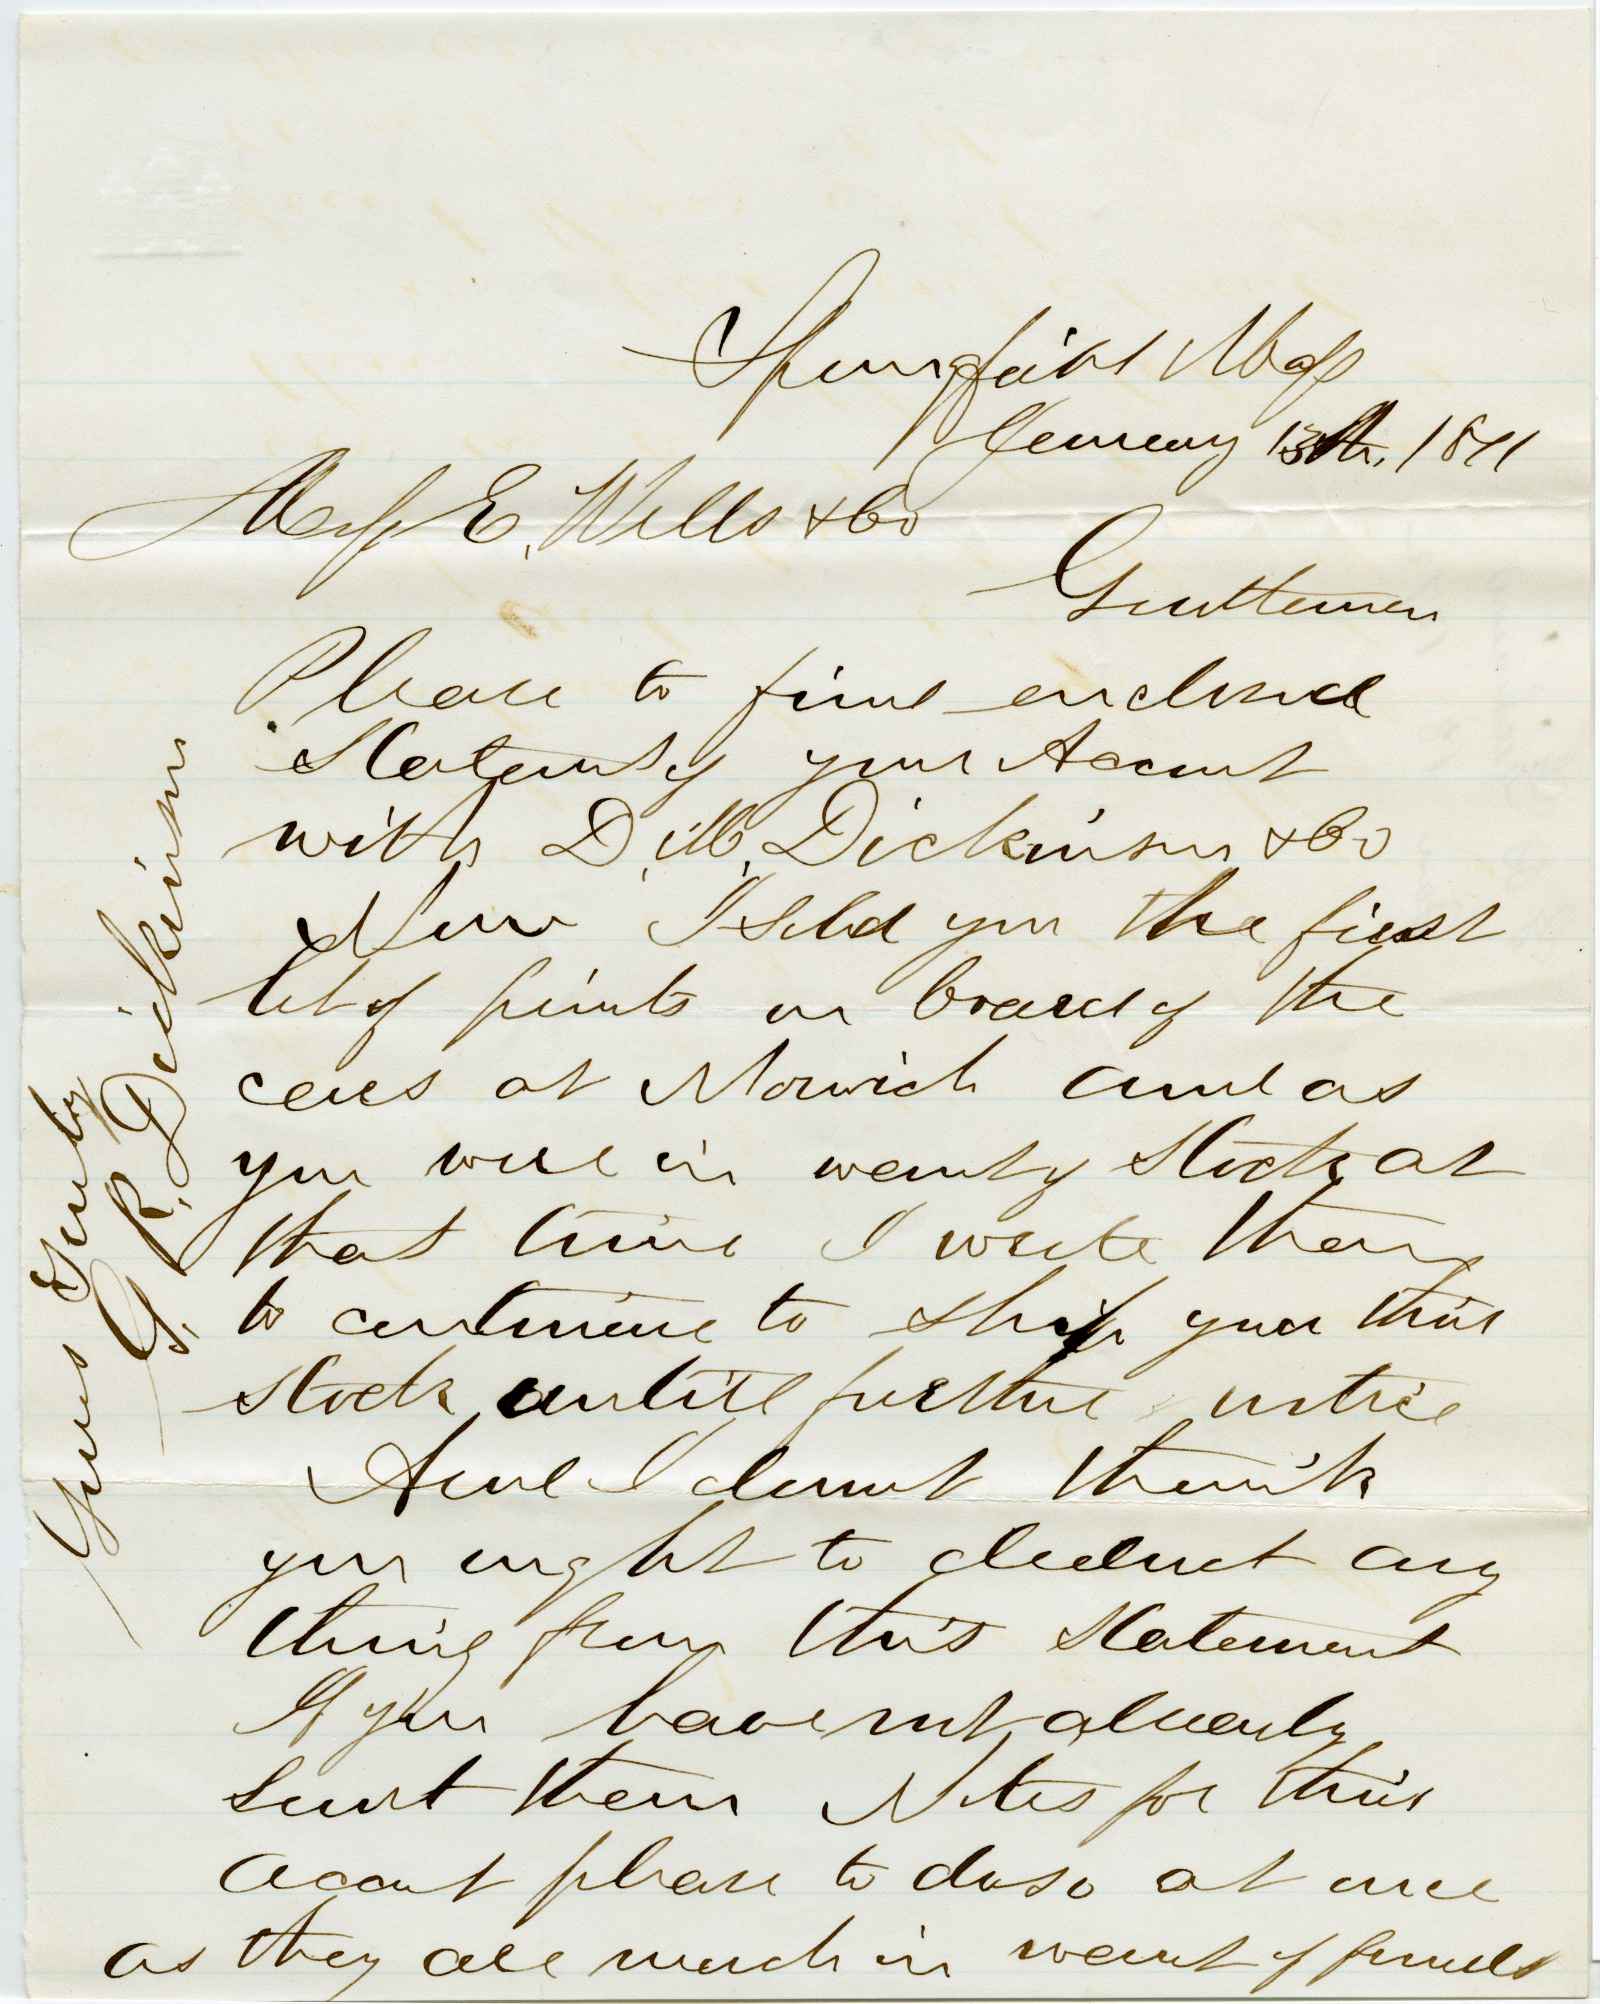 Springfield Mass
January 13th, 1871
Mess E. Wells & Co
Gentlemen
Please to find enclosed
Statement of your Account
with D. M. Dickinson & Co
Now I sold you the first
lot of prints on board of the
cars at Norwich and as
you were in want of Stock at
that time I wrote them
to continue to ship you this
stock until further notice
And I do not think
you ought to deduct any
thing from this Statement
If you have not already
sent them Notes for this
account please to do so at once
as they are much in want of funds
Yours Truly
G. R. Dickinson